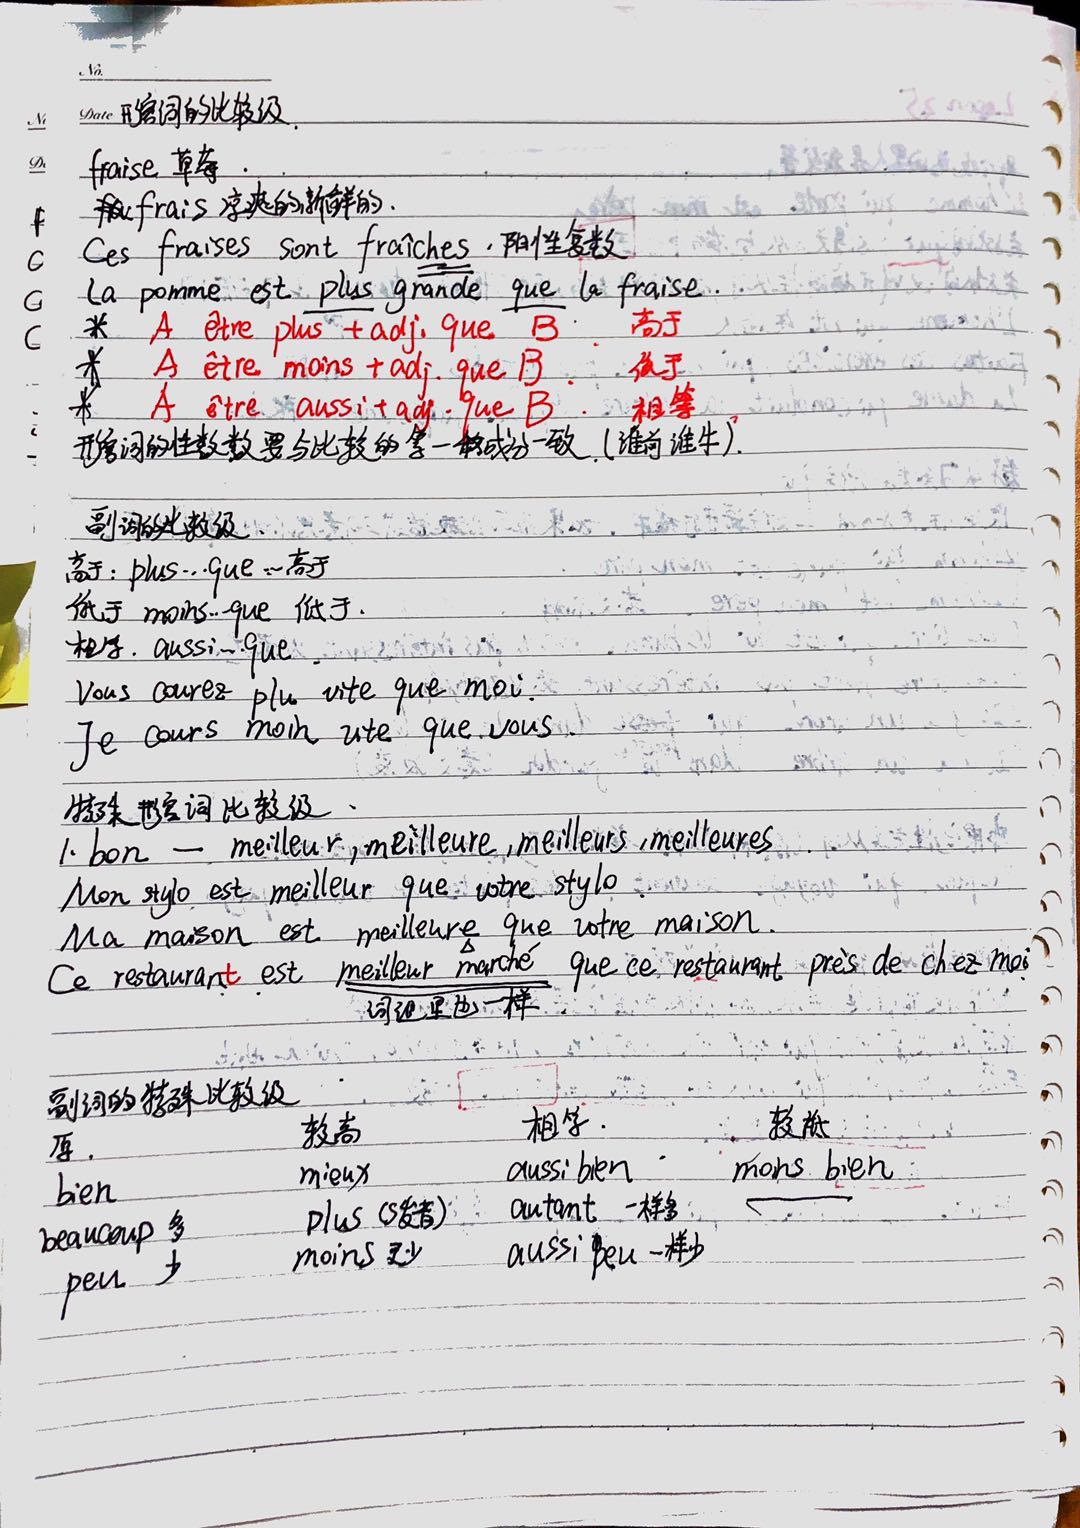 No.
Date 形容词的比较级.
fraise 草莓.
frais 凉爽的新鲜的.
Ces fraises sont fraîches. 阴性复数
La pomme est plus grande que la fraise.
* A être plus + adj. que B. 高于
* A être moins + adj. que B. 低于
* A être aussi + adj. que B. 相等
形容词的性数数要与比较的第一成分一致.(谁前谁牛).
副词的比较级.
高于: plus...que...高于
低于 moins...que 低于.
相等. aussi...que.
Vous courez plu vite que moi.
Je cours moin vite que vous.
特殊形容词比较级.
1. bon — meilleur, meilleure, meilleurs, meilleures
Mon stylo est meilleur que votre stylo.
Ma maison est meilleure que votre maison.
Ce restaurant est meilleur marché que ce restaurant près de chez moi
词组里也一样.
副词的特殊比较级
原. 较高 相等. 较低
bien mieux aussi bien moins bien
beaucoup 多 plus (S发音) autant 一样多
peu 少 moins 更少 aussi peu 一样少